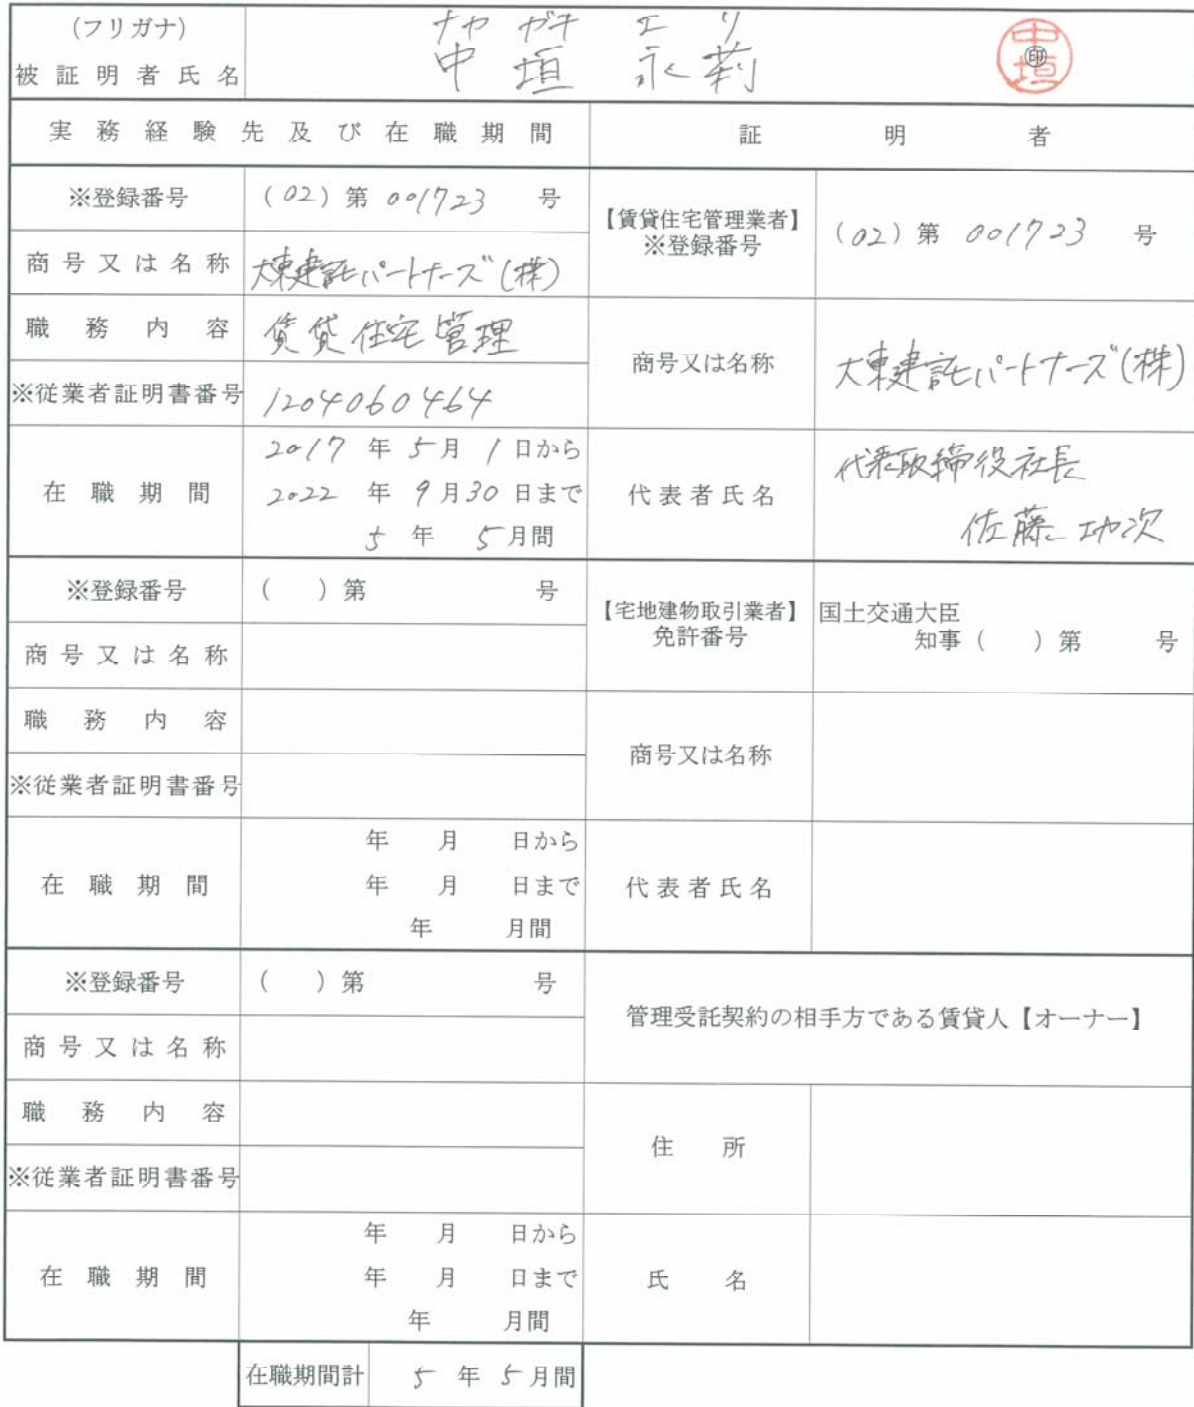 (フリガナ)
ナカ ガキ エリ
被証明者氏名
中垣 永莉
中垣
㊞
実務経験先及び在職期間
証明者
※登録番号
(02)第 001723 号
商号又は名称
大東建託パートナーズ(株)
職務内容
賃貸住宅管理
※従業者証明書番号
1204060464
在職期間
2017年5月1日から
2022年9月30日まで
5年 5月間
【賃貸住宅管理業者】
※登録番号
(02)第 001723 号
商号又は名称
大東建託パートナーズ(株)
代表者氏名
代表取締役社長
佐藤 功次
※登録番号
( )第 号
商号又は名称
職務内容
※従業者証明書番号
在職期間
年 月 日から
年 月 日まで
年 月間
【宅地建物取引業者】
免許番号
国土交通大臣
知事( )第 号
商号又は名称
代表者氏名
※登録番号
( )第 号
商号又は名称
職務内容
※従業者証明書番号
在職期間
年 月 日から
年 月 日まで
年 月間
管理受託契約の相手方である賃貸人【オーナー】
住所
氏名
在職期間計
5年5月間